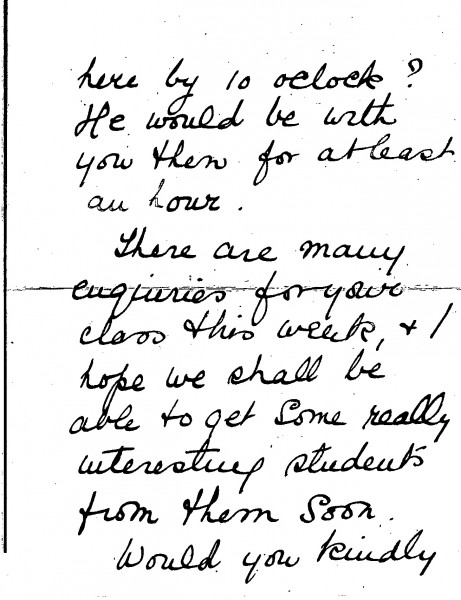 here by 10 oclock?
He would be with
you then for at least
an hour.
There are many
enquiries for your
class this week, & I
hope we shall be
able to get some really
interesting students
from them soon.
Would you kindly